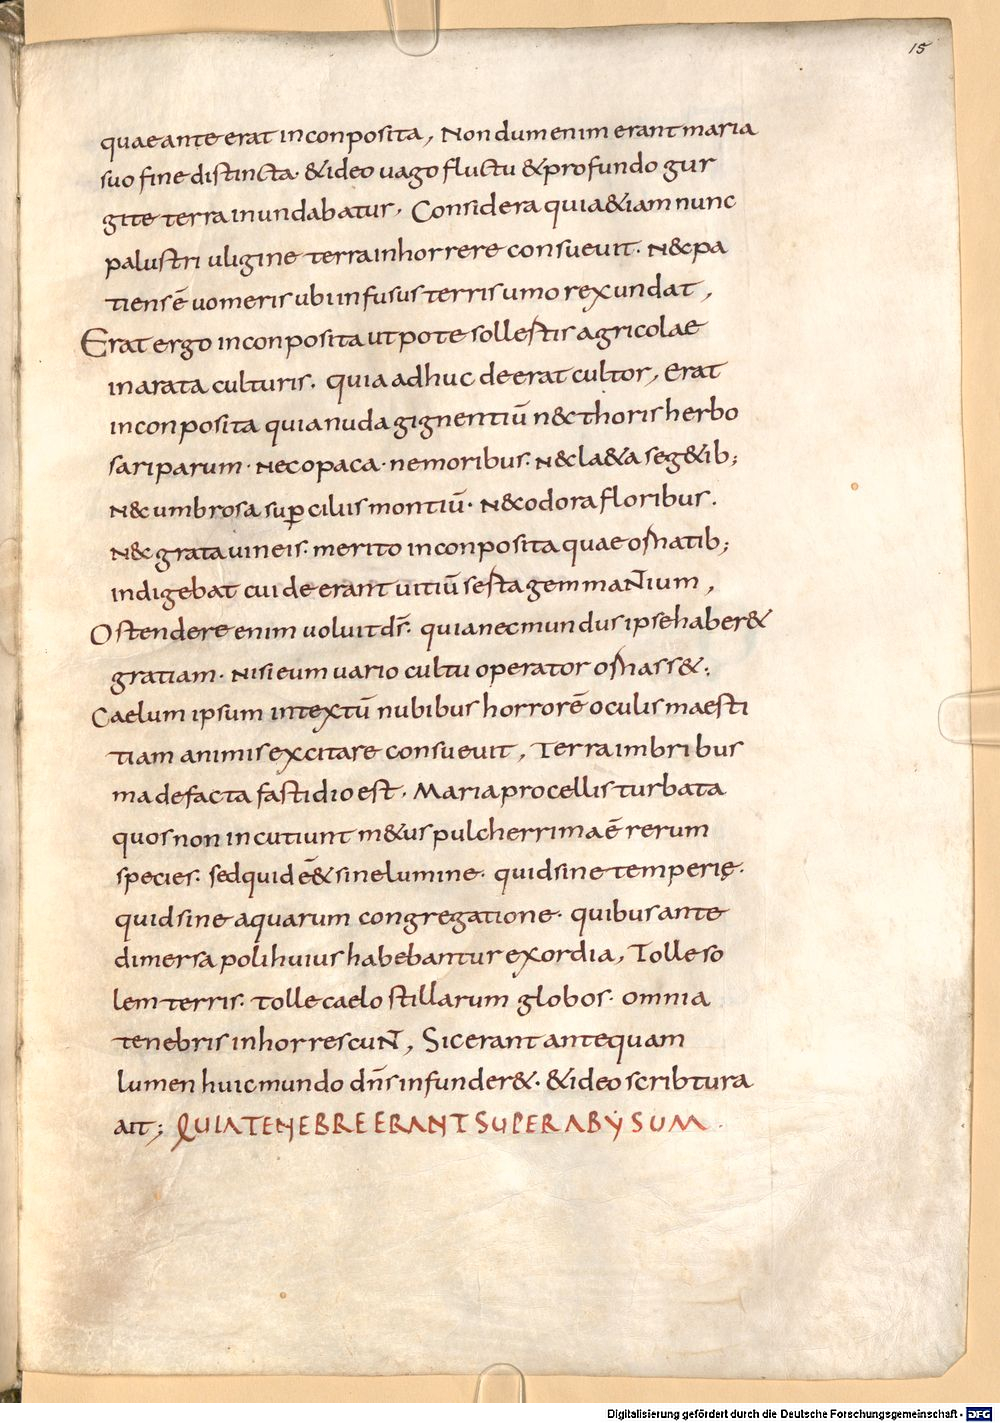 15
quae ante erat inconposita, Nondum enim erant maria
suo fine distincta· &ideo uago fluctu &profundo gur
gite terra inundabatur, Considera quia &iam nunc
palustri uligine terra inhorrere consueuit· N&pa
tiens ē uomeris ubi infusus terris umor exundat,
Erat ergo inconposita utpote sollestis agricolae
inarata culturis· quia adhuc deerat cultor, Erat
inconposita quia nuda gignentiū n&c thoris herbo
sa riparum· Nec opaca· nemoribus· N&c la&a seg&ib;
N&c umbrosa suꝑciliis montiū· N&c odora floribus·
N&c grata uineis· merito inconposita quae ornatib;
indigebat cui deerant uitiū serta gemmantium,
Ostendere enim uoluit d̄s· quia nec mundus ipse haber&
gratiam· Nisi eum uario cultu operator ornass&;
Caelum ipsum intextū nubibus horrorē oculis maesti
tiam animis excitare consueuit, Terra imbribus
madefacta fastidio est· Maria procellis turbata
quos non incutiunt m&us pulcherrima ē rerum
species· sed quid ē & sine lumine· quid sine temperie·
quid sine aquarum congregatione· quibus ante
dimersa poli huius habebantur exordia, Tolle so
lem terris· tolle caelo stillarum globos· omnia
tenebris inhorrescunt, Sic erant antequam
lumen huic mundo dn̄s infunder&· &ideo scribtura
ait; QUIA TENEBRE ERANT SUPER ABYSUM
Digitalisierung gefördert durch die Deutsche Forschungsgemeinschaft - DFG